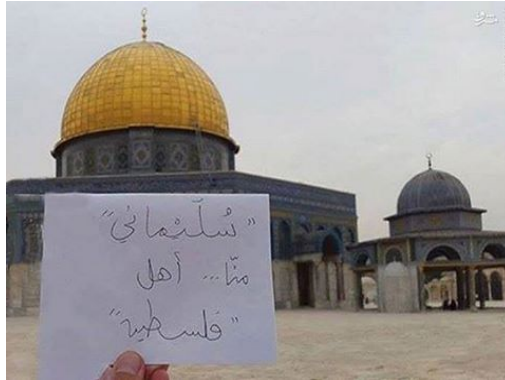 "سُلَيْماني"
منّا... أهل
"فلسطين"